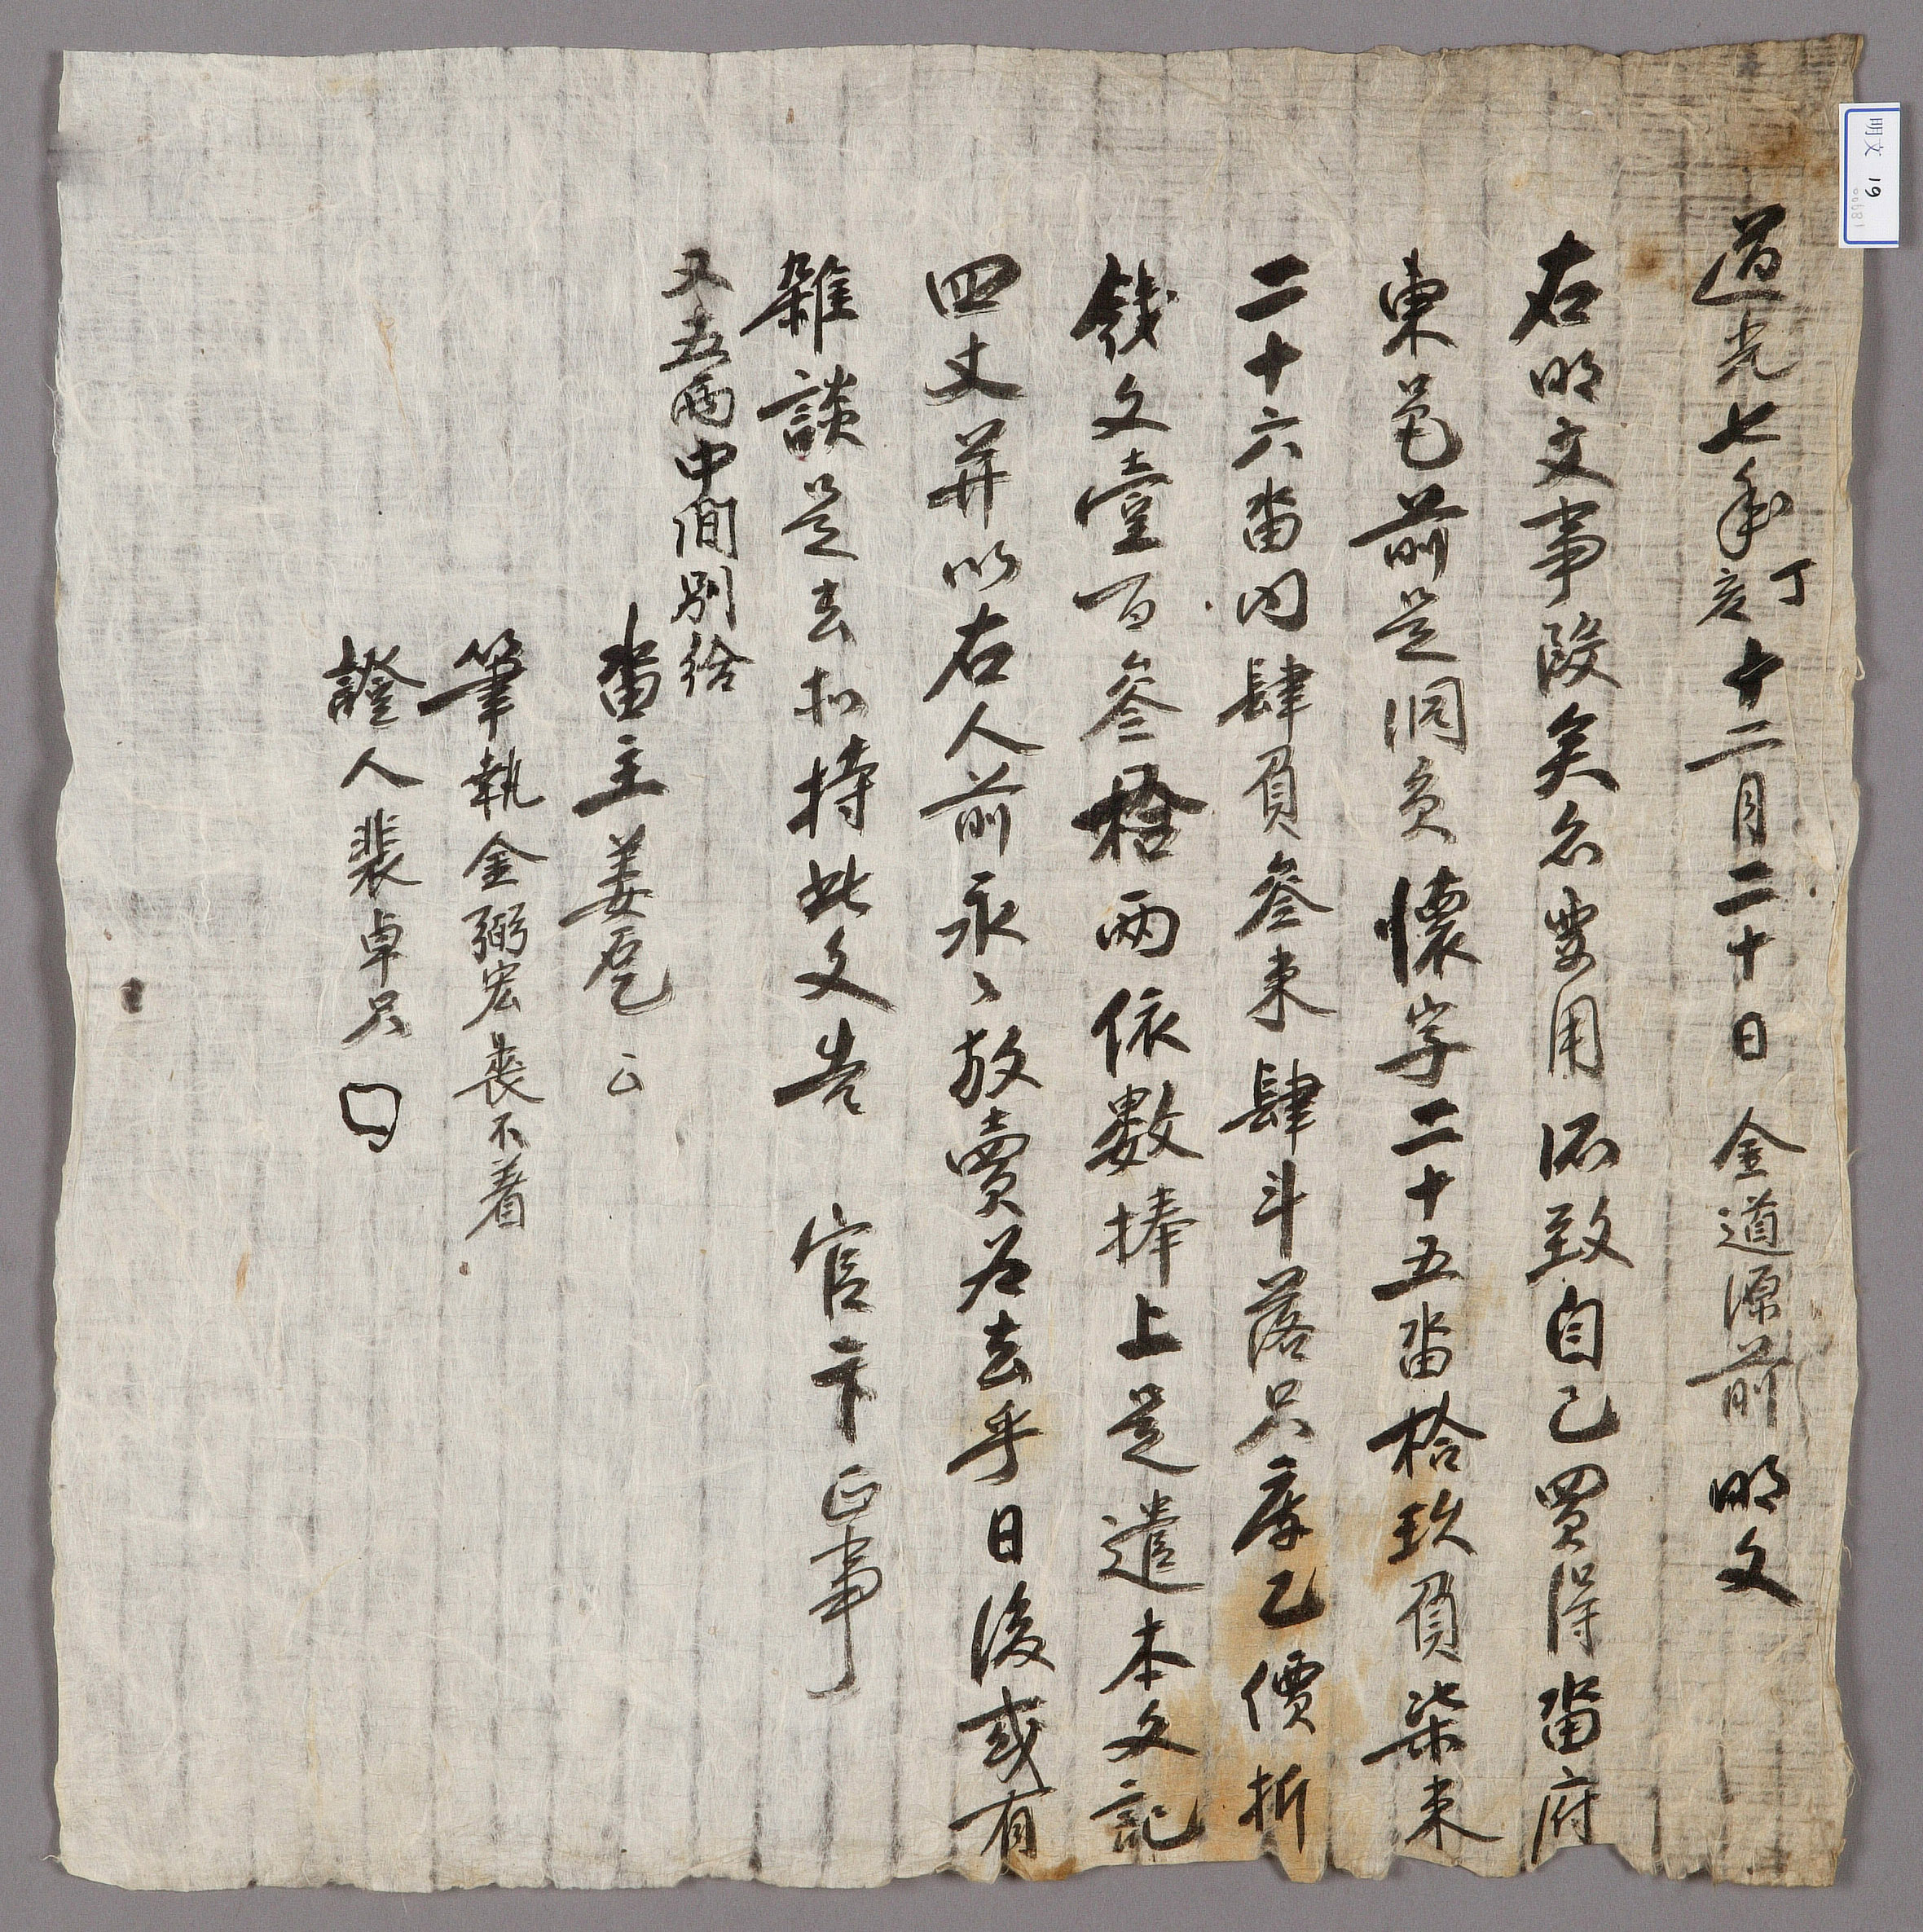 道光七年丁亥十二月二十日 金道源前 明文
右明文事段矣名要用所致自己買得畓府
東邑前是洞員懷字二十五畓拾玖負柒束
二十六畓內肆負參束肆斗落只庫乙價折
錢文壹百參拾兩依數捧上是遣本文記
四丈幷以右人前永〻放賣爲去乎日後或有
雜談是去扣持此文告 官卞正事
又五兩中間別給
畓主姜
筆執金弼宏喪不着
證人裴卓只
明文 19